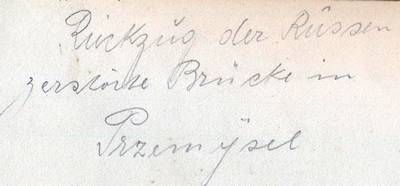 Rückzug der Russen
zerstörte Brücke in
Przemysel